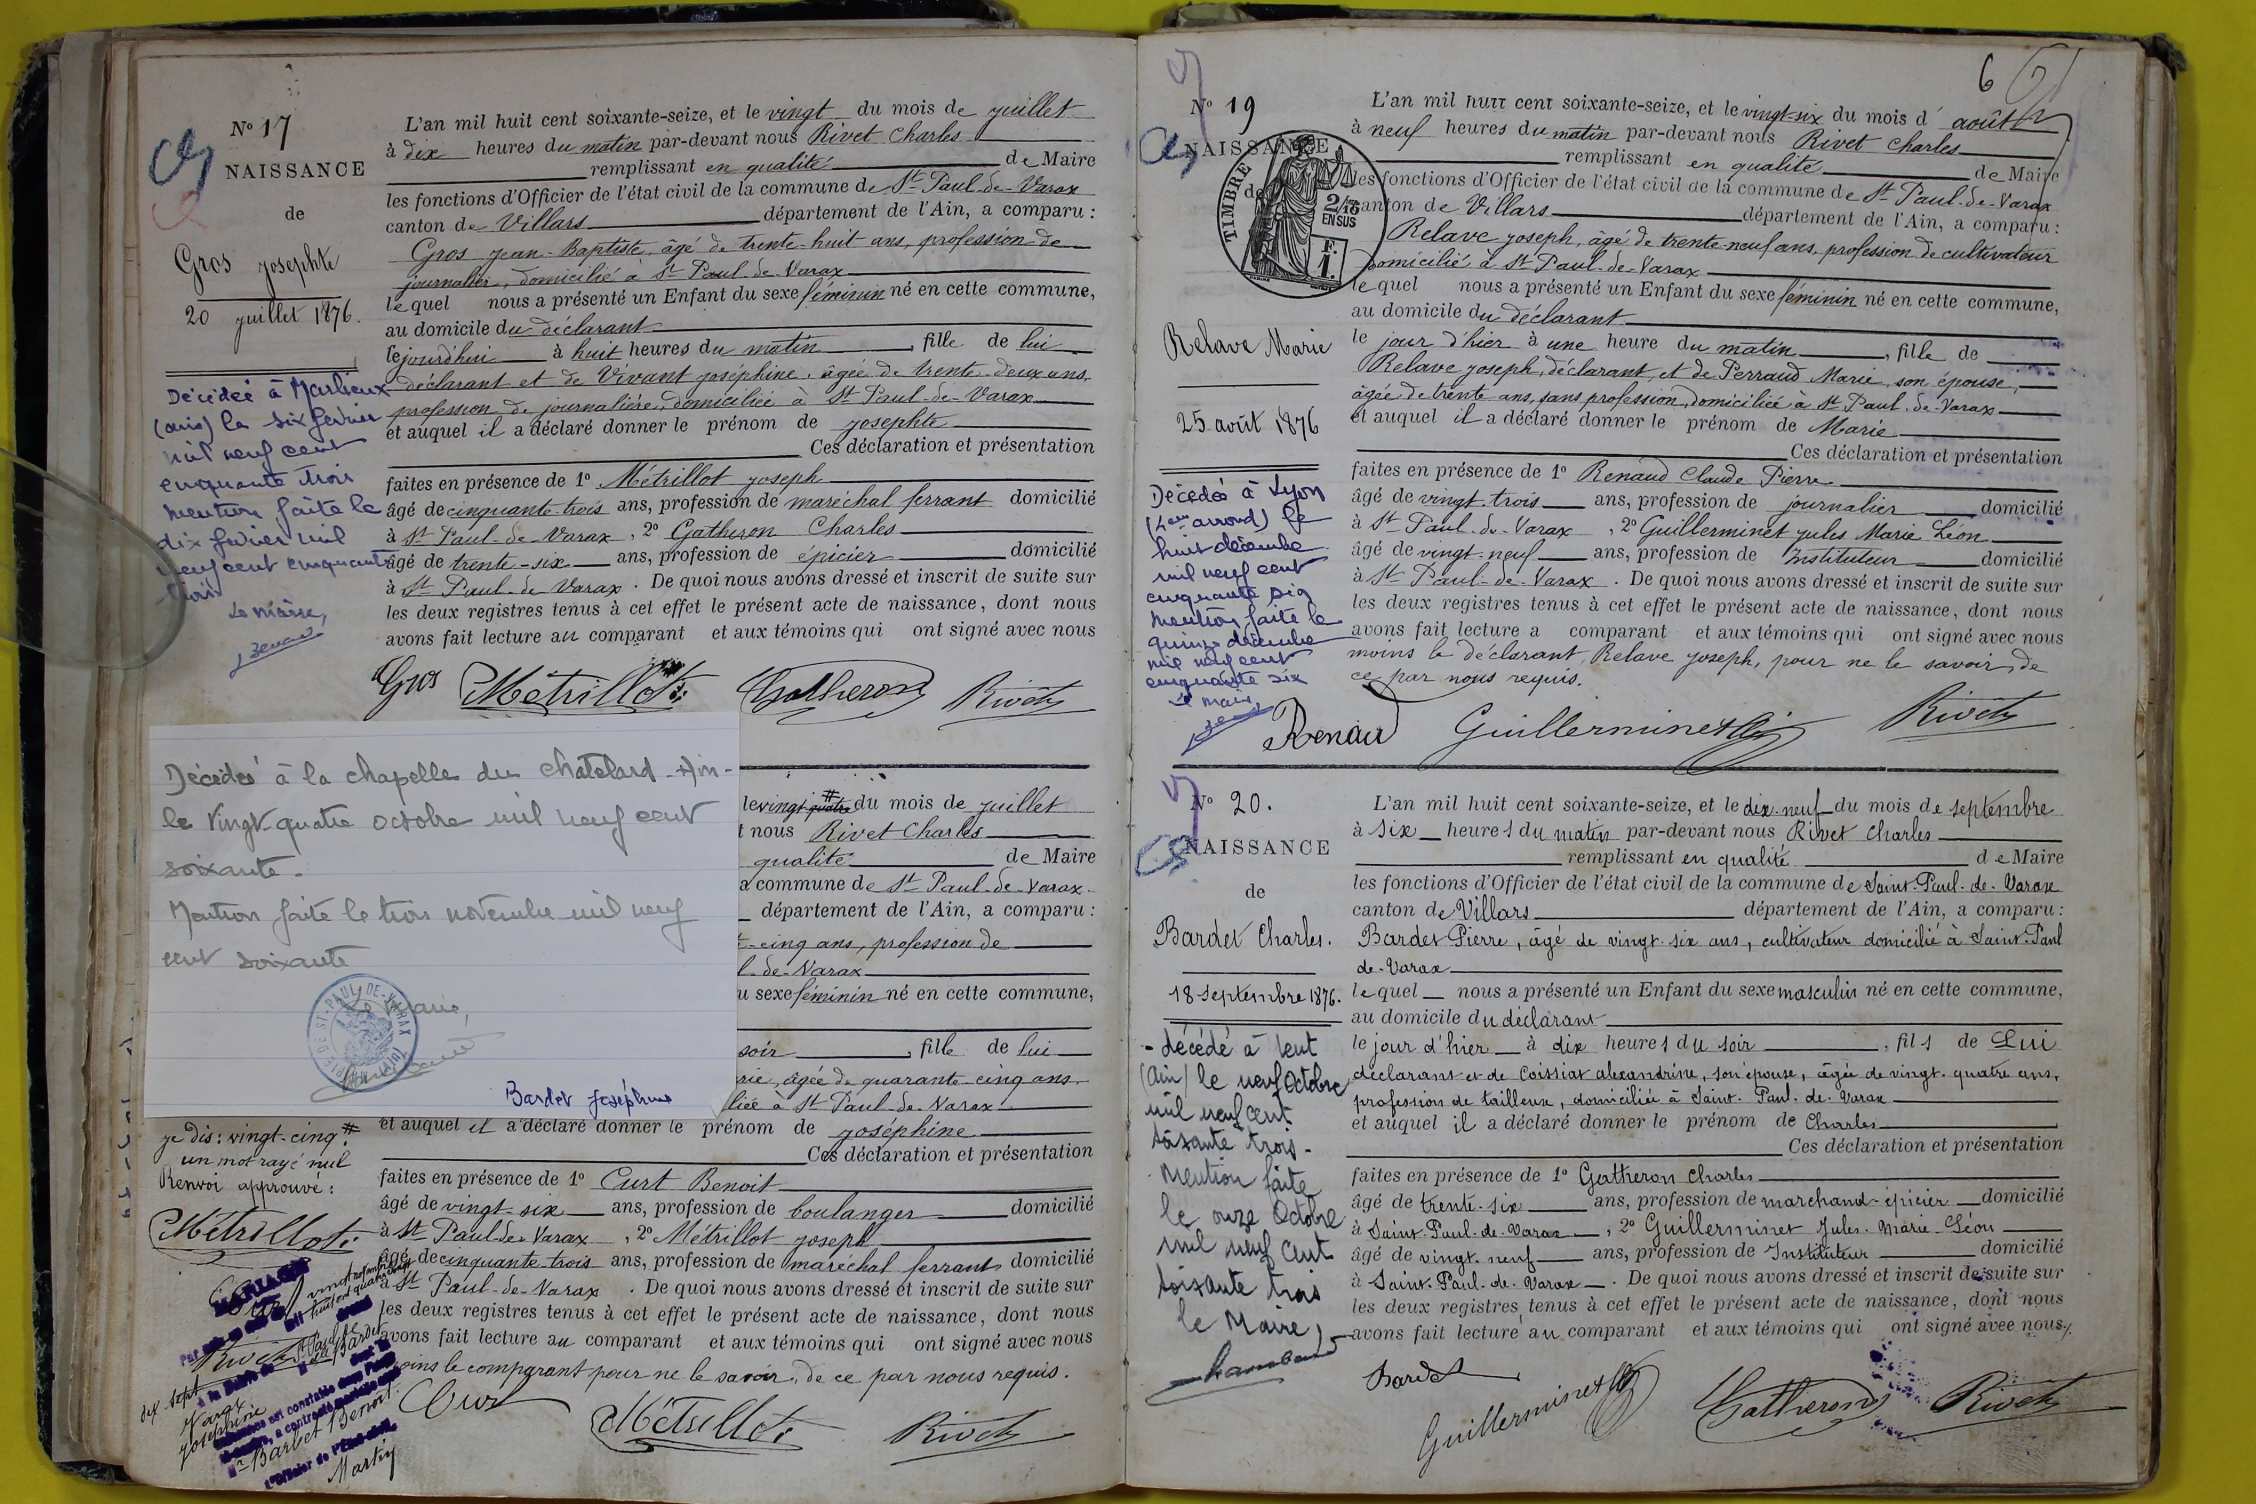 N° 17
NAISSANCE
de
Gros josephte
20 juillet 1876.
Décédée à Marlieux
(ain) le six février
mil neuf cent
cinquante trois
mention faite le
dix février mil
neuf cent cinquante
trois
Le maire,
L'an mil huit cent soixante-seize, et le vingt du mois de juillet
à dix heures du matin par-devant nous Rivet Charles
remplissant en qualité de Maire
les fonctions d'Officier de l'état civil de la commune de St Paul-de-Varax
canton de Villars département de l'Ain, a comparu :
Gros jean-Baptiste, âgé de trente-huit ans, profession de
journalier, domicilié à St Paul-de-Varax
lequel nous a présenté un Enfant du sexe féminin né en cette commune,
au domicile du déclarant
cejourd'hui à huit heures du matin, fille de lui
déclarant et de Vivant joséphine, âgée de trente-deux ans,
profession de journalière, domiciliée à St Paul-de-Varax
et auquel il a déclaré donner le prénom de josephte
Ces déclaration et présentation
faites en présence de 1° Métrillot joseph
âgé de cinquante-trois ans, profession de maréchal ferrant domicilié
à St Paul-de-Varax, 2° Gatheron Charles
âgé de trente-six ans, profession de épicier domicilié
à St Paul-de-Varax. De quoi nous avons dressé et inscrit de suite sur
les deux registres tenus à cet effet le présent acte de naissance, dont nous
avons fait lecture au comparant et aux témoins qui ont signé avec nous
Gros Métrillot Gatheron Rivet
Décédée à la chapelle du chatelard -Ain-
le vingt quatre octobre mil neuf cent
soixante.
Mention faite le trois novembre mil neuf
cent soixante
Le Maire,
Bardet joséphine
le vingt quatre # du mois de juillet
t nous Rivet Charles
qualité de Maire
a commune de St Paul-de-Varax
département de l'Ain, a comparu :
-cinq ans, profession de
l-de-Varax
u sexe féminin né en cette commune,
soir, fille de lui
rie, âgée de quarante-cinq ans,
liée à St Paul-de-Varax
et auquel il a déclaré donner le prénom de joséphine
Ces déclaration et présentation
faites en présence de 1° Curt Benoit
âgé de vingt-six ans, profession de boulanger domicilié
à St Paul-de-Varax, 2° Métrillot joseph
âgé de cinquante-trois ans, profession de maréchal ferrant domicilié
à St Paul-de-Varax. De quoi nous avons dressé et inscrit de suite sur
les deux registres tenus à cet effet le présent acte de naissance, dont nous
avons fait lecture au comparant et aux témoins qui ont signé avec nous
moins le comparant pour ne le savoir, de ce par nous requis.
Curt Métrillot Rivet
je dis : vingt-cinq #
un mot rayé nul
Renvoi approuvé :
Métrillot
Curt
Rivet
MARIAGE
dix-sept
Varax
joséphine
Barbet Benoit
L'Officier de l'Etat-civil,
Martin
6
N° 19
NAISSANCE
de
TIMBRE
2/10
EN SUS
F.
1.
Relave Marie
25 août 1876
Décédée à Lyon
(4ème arrond) le
huit décembre
mil neuf cent
cinquante six
mention faite le
quinze décembre
mil neuf cent
cinquante six
Le maire,
L'an mil huit cent soixante-seize, et le vingt-six du mois d' août
à neuf heures du matin par-devant nous Rivet Charles
remplissant en qualité de Maire
les fonctions d'Officier de l'état civil de la commune de St Paul-de-Varax
canton de Villars département de l'Ain, a comparu :
Relave joseph, âgé de trente-neuf ans, profession de cultivateur
domicilié à St Paul-de-Varax
lequel nous a présenté un Enfant du sexe féminin né en cette commune,
au domicile du déclarant
le jour d'hier à une heure du matin, fille de
Relave joseph, déclarant, et de Perraud Marie, son épouse,
âgée de trente ans, sans profession, domiciliée à St Paul-de-Varax
et auquel il a déclaré donner le prénom de Marie
Ces déclaration et présentation
faites en présence de 1° Renaud Claude Pierre
âgé de vingt-trois ans, profession de journalier domicilié
à St Paul-de-Varax, 2° Guillerminet jules Marie Léon
âgé de vingt-neuf ans, profession de Instituteur domicilié
à St Paul-de-Varax. De quoi nous avons dressé et inscrit de suite sur
les deux registres tenus à cet effet le présent acte de naissance, dont nous
avons fait lecture a comparant et aux témoins qui ont signé avec nous
moins le déclarant, Relave joseph, pour ne le savoir, de
ce par nous requis.
Renaud Guillerminet Rivet
N° 20.
NAISSANCE
de
Bardet Charles.
18 Septembre 1876.
- décédé à Lent
(Ain) le neuf Octobre
mil neuf cent
soixante trois -
Mention faite
le onze Octobre
mil neuf cent
soixante trois
le Maire,
L'an mil huit cent soixante-seize, et le dix-neuf du mois de septembre
à six heures du matin par-devant nous Rivet Charles
remplissant en qualité de Maire
les fonctions d'Officier de l'état civil de la commune de Saint-Paul-de-Varax
canton de Villars département de l'Ain, a comparu :
Bardet Pierre, âgé de vingt-six ans, cultivateur domicilié à Saint-Paul
de-Varax
lequel nous a présenté un Enfant du sexe masculin né en cette commune,
au domicile du déclarant
le jour d'hier à dix heures du soir, fils de Lui
déclarant et de Coissiat alexandrine, son épouse, âgée de vingt-quatre ans,
profession de tailleuse, domiciliée à Saint-Paul-de-Varax
et auquel il a déclaré donner le prénom de Charles
Ces déclaration et présentation
faites en présence de 1° Gatheron Charles
âgé de trente-six ans, profession de marchand-épicier domicilié
à Saint-Paul-de-Varax, 2° Guillerminet Jules-Marie-Léon
âgé de vingt-neuf ans, profession de Instituteur domicilié
à Saint-Paul-de-Varax. De quoi nous avons dressé et inscrit de suite sur
les deux registres tenus à cet effet le présent acte de naissance, dont nous
avons fait lecture au comparant et aux témoins qui ont signé avec nous.
Bardet Guillerminet Gatheron Rivet